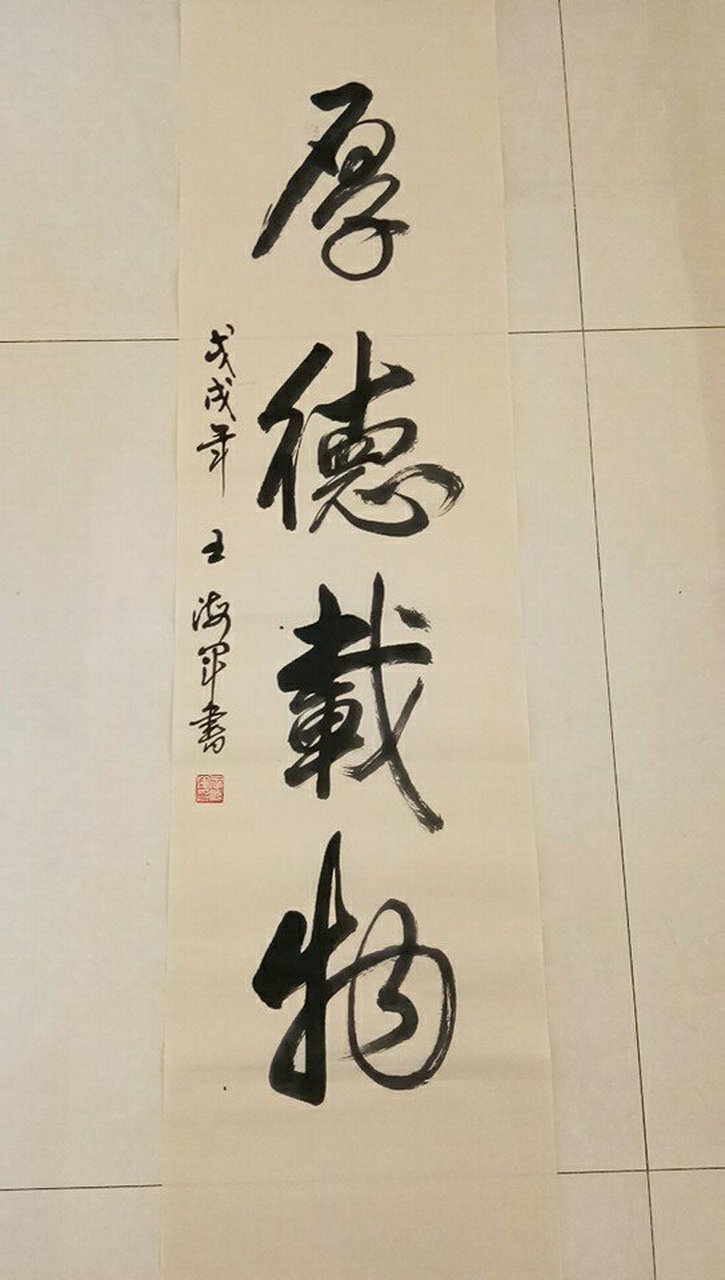 厚德載物
戊戌年 王海軍書